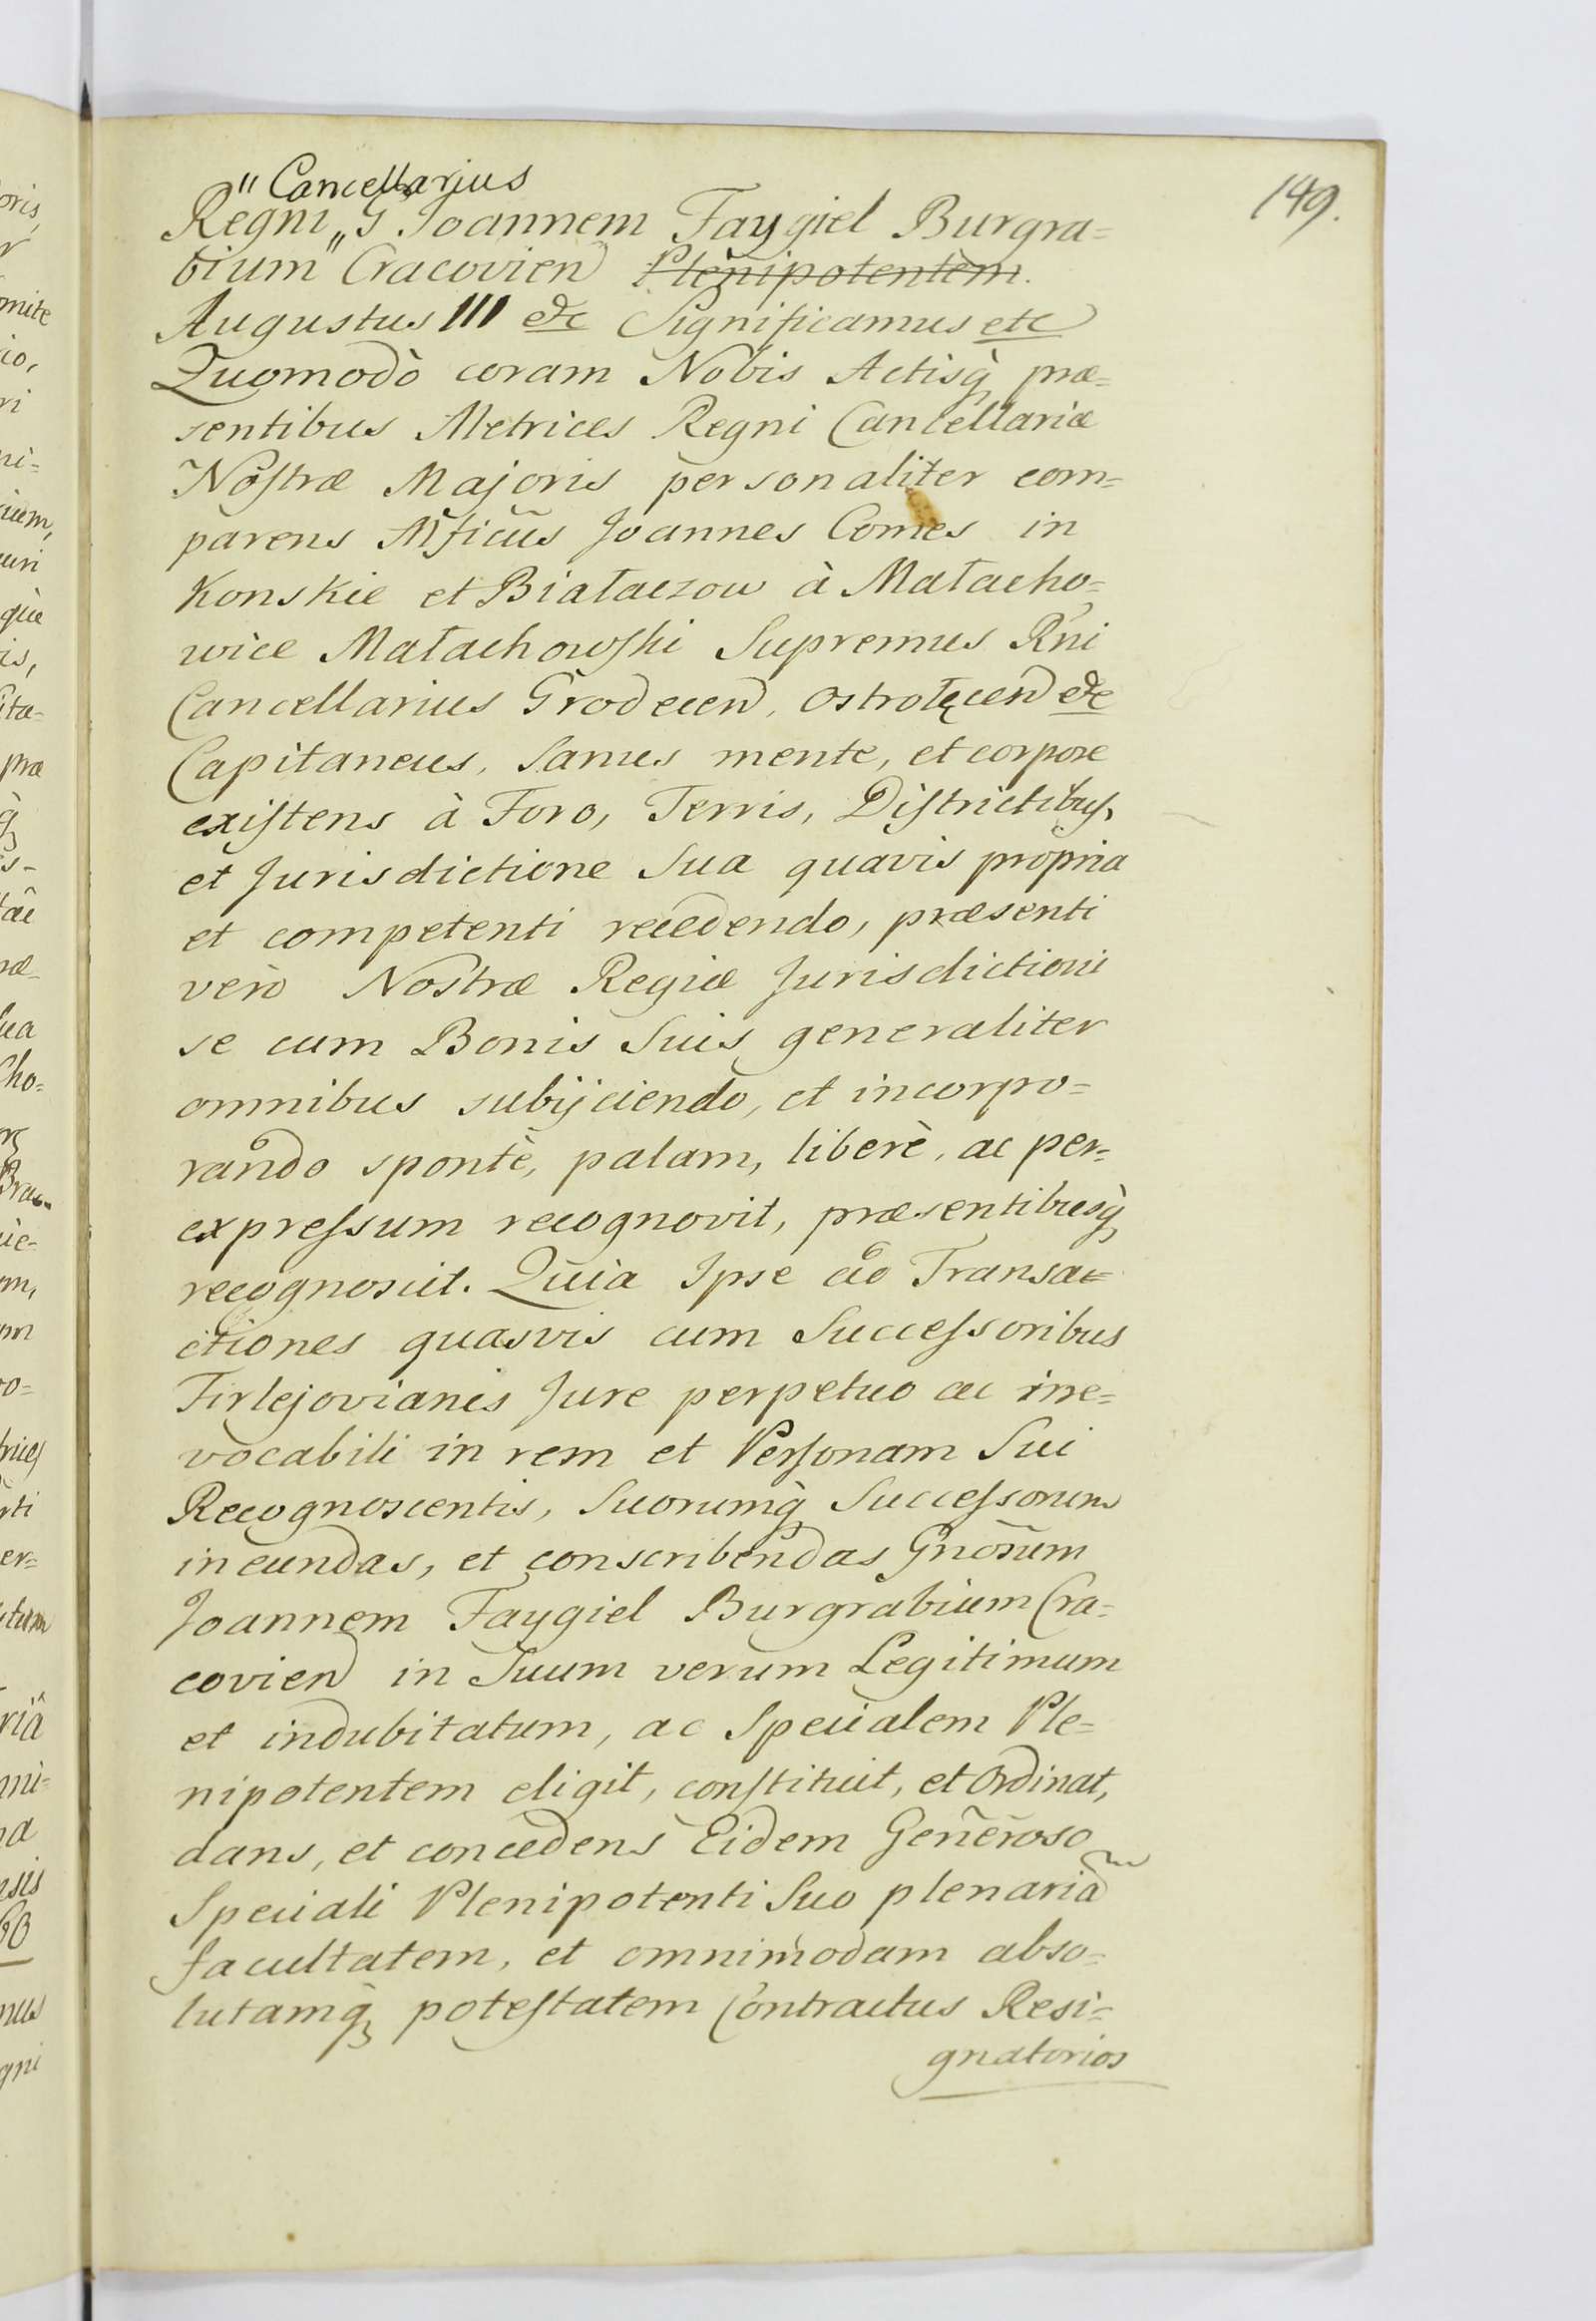 149.
" Cancellarius
Regni „ G Joannem Faygiel Burgra=
bium" Cracovien Plenipotentem.
Augustus III etc Significamus etc
Quomodò coram Nobis Actisq̀ præ=
sentibus Metrices Regni Cancellariæ
Nostræ Majoris personaliter com=
parens Mficus Joannes Comes in
Konskie et Białaczow à Małacho=
wice Małachowski Supremus Rni
Cancellarius Grodecen, Ostrołęcen etc
Capitaneus, Sanus mente, et corpore
existens à Foro, Terris, Districtibus,
et Jurisdictione Sua quavis propria
et competenti recedendo, præsenti
verò Nostræ Regiæ Jurisdictioni
se cum Bonis Suis generaliter
omnibus subijciendo, et incorpo=
rando spontè, palam, liberè, ac per=
expressum recognovit, præsentibusq̀
recognoscit. Quia Ipse ad Transa=
ctiones quasvis cum Successoribus
Firlejovianis Jure perpetuo ac irre=
vocabili in rem et Personam Sui
Recognoscentis, Suorumq̀ Successorum
ineundas, et conscribendas Gnosum
Joannem Faygiel Burgrabium Cra=
covien in Suum verum Legitimum
et indubitatum, ac Specialem Ple=
nipotentem eligit, constituit, et Ordinat,
dans, et concedens Eidem Generoso
Speciali Plenipotenti Suo plenariã
facultatem, et omnimodam abso=
lutamq̀ potestatem Contractus Resi=
gnatorios